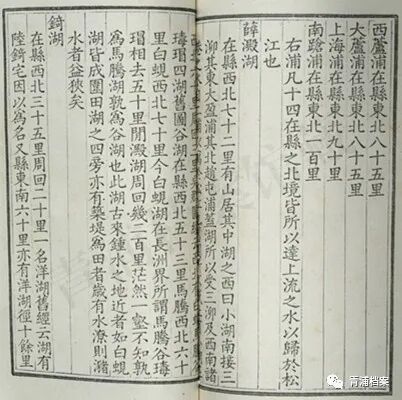 西蘆浦在縣東北八十五里
大蘆浦在縣東北八十五里
上海浦在縣東北九十里
南蹌浦在縣東北一百里
右浦凡十四在縣之北境皆所以達上流之水以歸於松
江也
薛澱湖
在縣西北七十二里有山居其中湖之西曰小湖南接三
泖其東大盈浦其北趙屯浦蓋湖所以受三泖及西南諸
瑇四湖舊圖谷湖在縣西北五十三里馬騰西北六十
里白蜆西北七十里今白蜆湖在長洲界所謂馬騰谷瑇
瑁相去五十里間澱湖周回幾二百里茫然一壑不知孰
為馬騰湖孰為谷湖也此湖古來鍾水之地近者如白蜆
湖皆成圍田湖之四旁亦有築堤為田者歲有水潦則瀦
水者益狹矣
錡湖
在縣西北三十五里周回二十里一名洋湖舊經云湖有
陸錡宅因以為名又縣東南六十里亦有洋湖徑十餘里
青浦档案